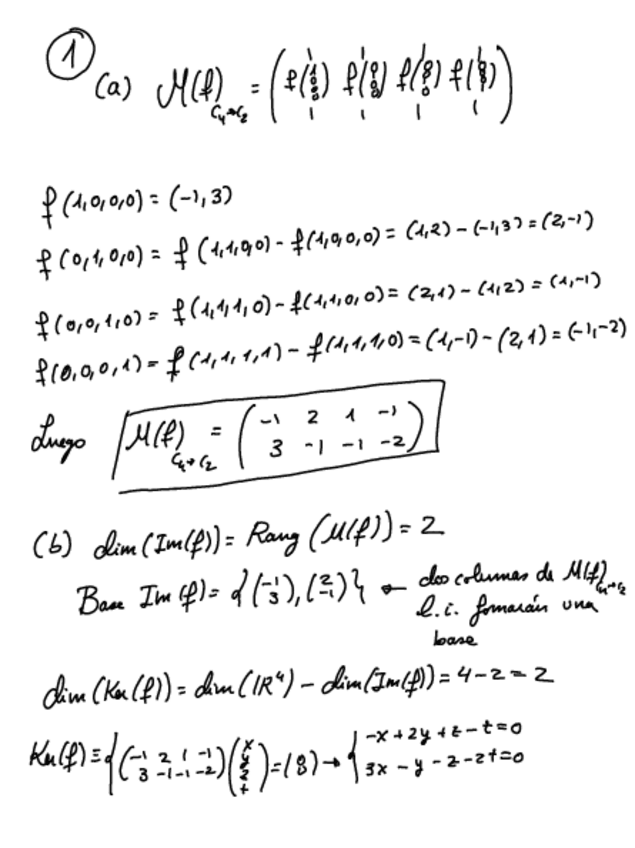 ①
(a) M(f) C₄→C₂ = (f(1 0 0 0) f(0 1 0 0) f(0 0 1 0) f(0 0 0 1))
f(1,0,0,0) = (-1,3)
f(0,1,0,0) = f(1,1,0,0) - f(1,0,0,0) = (1,2) - (-1,3) = (2,-1)
f(0,0,1,0) = f(1,1,1,0) - f(1,1,0,0) = (2,1) - (1,2) = (1,-1)
f(0,0,0,1) = f(1,1,1,1) - f(1,1,1,0) = (1,-1) - (2,1) = (-1,-2)
Luego M(f) C₄→C₂ = (-1 2 1 -1
3 -1 -1 -2)
(b) dim(Im(f)) = Rang(M(f)) = 2
Base Im(f) = {(-1 3), (2 -1)} ← dos columnas de M(f) C₄→C₂
l.i. formarán una
base
dim(Ker(f)) = dim(IR⁴) - dim(Im(f)) = 4-2 = 2
Ker(f) ≡ {(-1 2 1 -1
3 -1 -1 -2)(x y z t) = (0 0) → { -x+2y+z-t=0
3x-y-z-2t=0